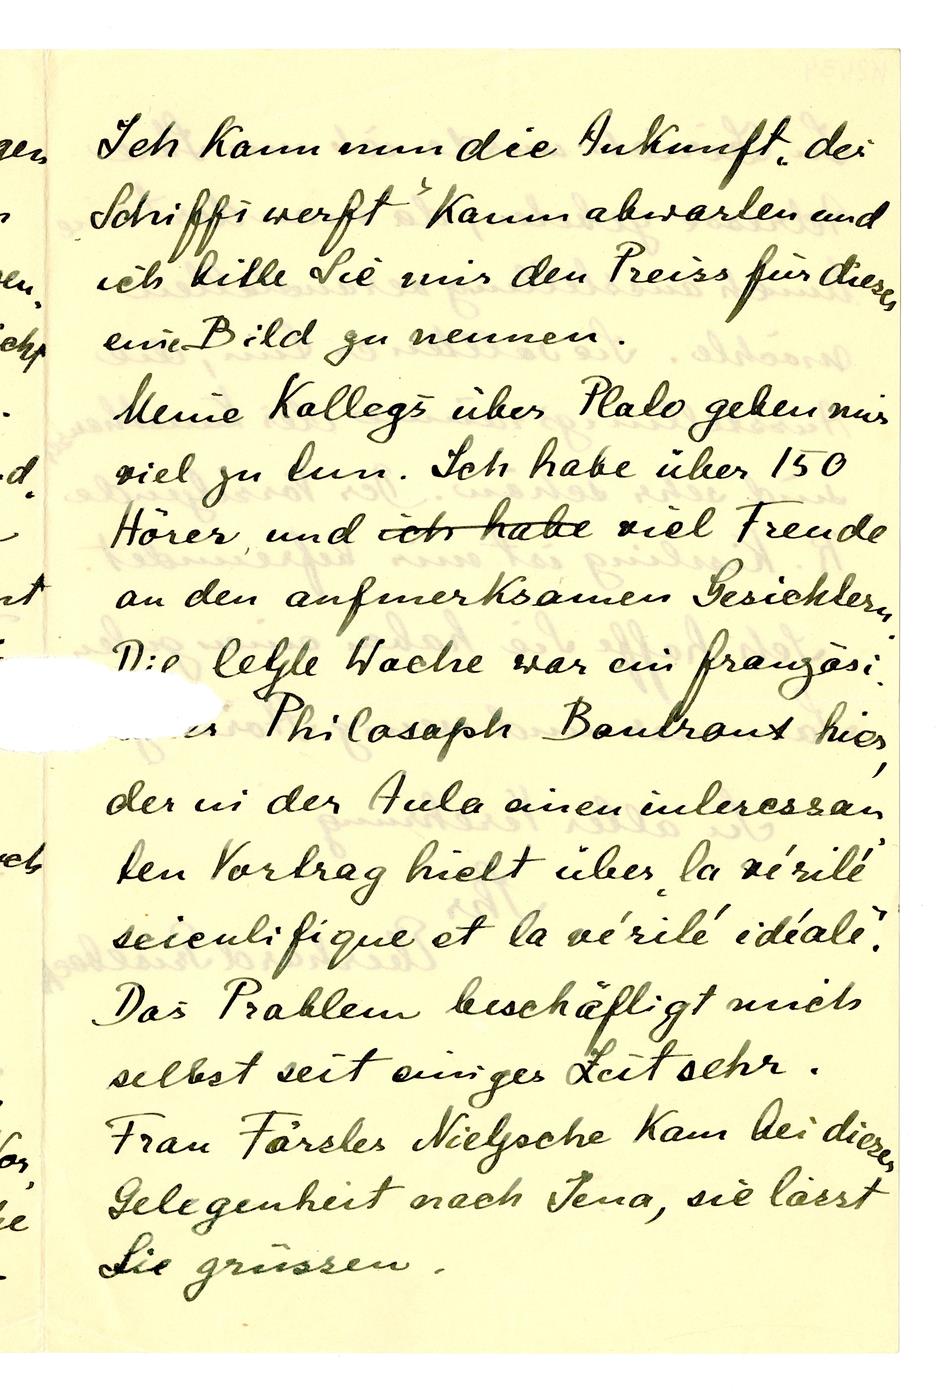 Ich kann nun die Ankunft „der
Schiffswerft“ kaum abwarten und
ich bitte Sie mir den Preiss für dieses
eine Bild zu nennen.
Meine Kollegs über Plato geben mir
viel zu tun. Ich habe über 150
Hörer, und ich habe viel Freude
an den aufmerksamen Gesichtern.
Die letzte Woche war ein französi-
Philosoph Boutroux hier,
der in der Aula einen interessan
ten Vortrag hielt über „la vérité
scientifique et la vérité idéale“.
Das Problem beschäftigt mich
selbst seit einiger Zeit sehr.
Frau Förster Nietzsche kam bei dieser
Gelegenheit nach Jena, sie lässt
Sie grüssen.